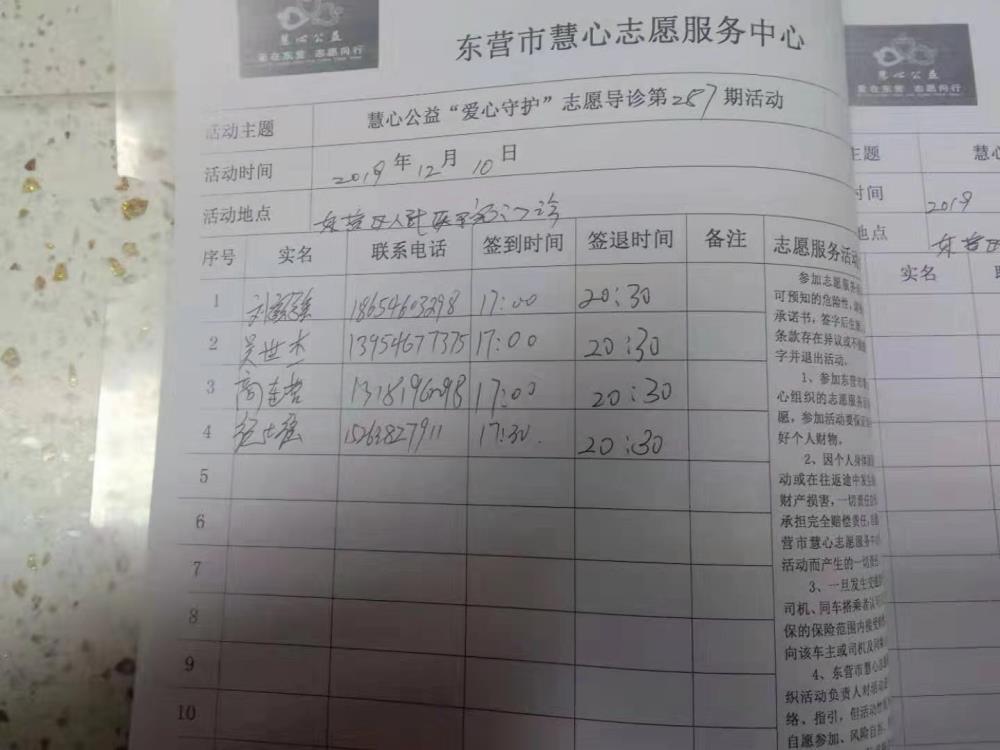 慧心公益
爱在东营 志愿同行
东营市慧心志愿服务中心
活动主题 慧心公益“爱心守护”志愿导诊第287期活动
活动时间 2019年12月10日
活动地点 东营区人民医院门诊
序号 实名 联系电话 签到时间 签退时间 备注 志愿服务活动
1 刘 18654603298 17:00 20:30
2 吴世杰 13954677375 17:00 20:30
3 高连哲 17:00 20:30
4 15263827911 17:30 20:30
5
6
7
8
9
10
参加志愿服务
可预知的危险性,
承诺书,签字后生
条款存在异议或不
字并退出活动。
1、参加东营市
心组织的志愿服务
愿,参加活动要保
好个人财物。
2、因个人身体
动或在往返途中发
财产损害,一切责任
承担完全赔偿责任,
营市慧心志愿服务中
活动而产生的一切责
3、一旦发生交通
司机、同车搭乘者
保的保险范围内接受
向该车主或司机及同
4、东营市慧心
织活动负责人对活动
络、指引,但活动
自愿参加、风险自
慧心公益
爱在东营 志愿同行
主题 慧心
时间 2019
地点 东营区
实名